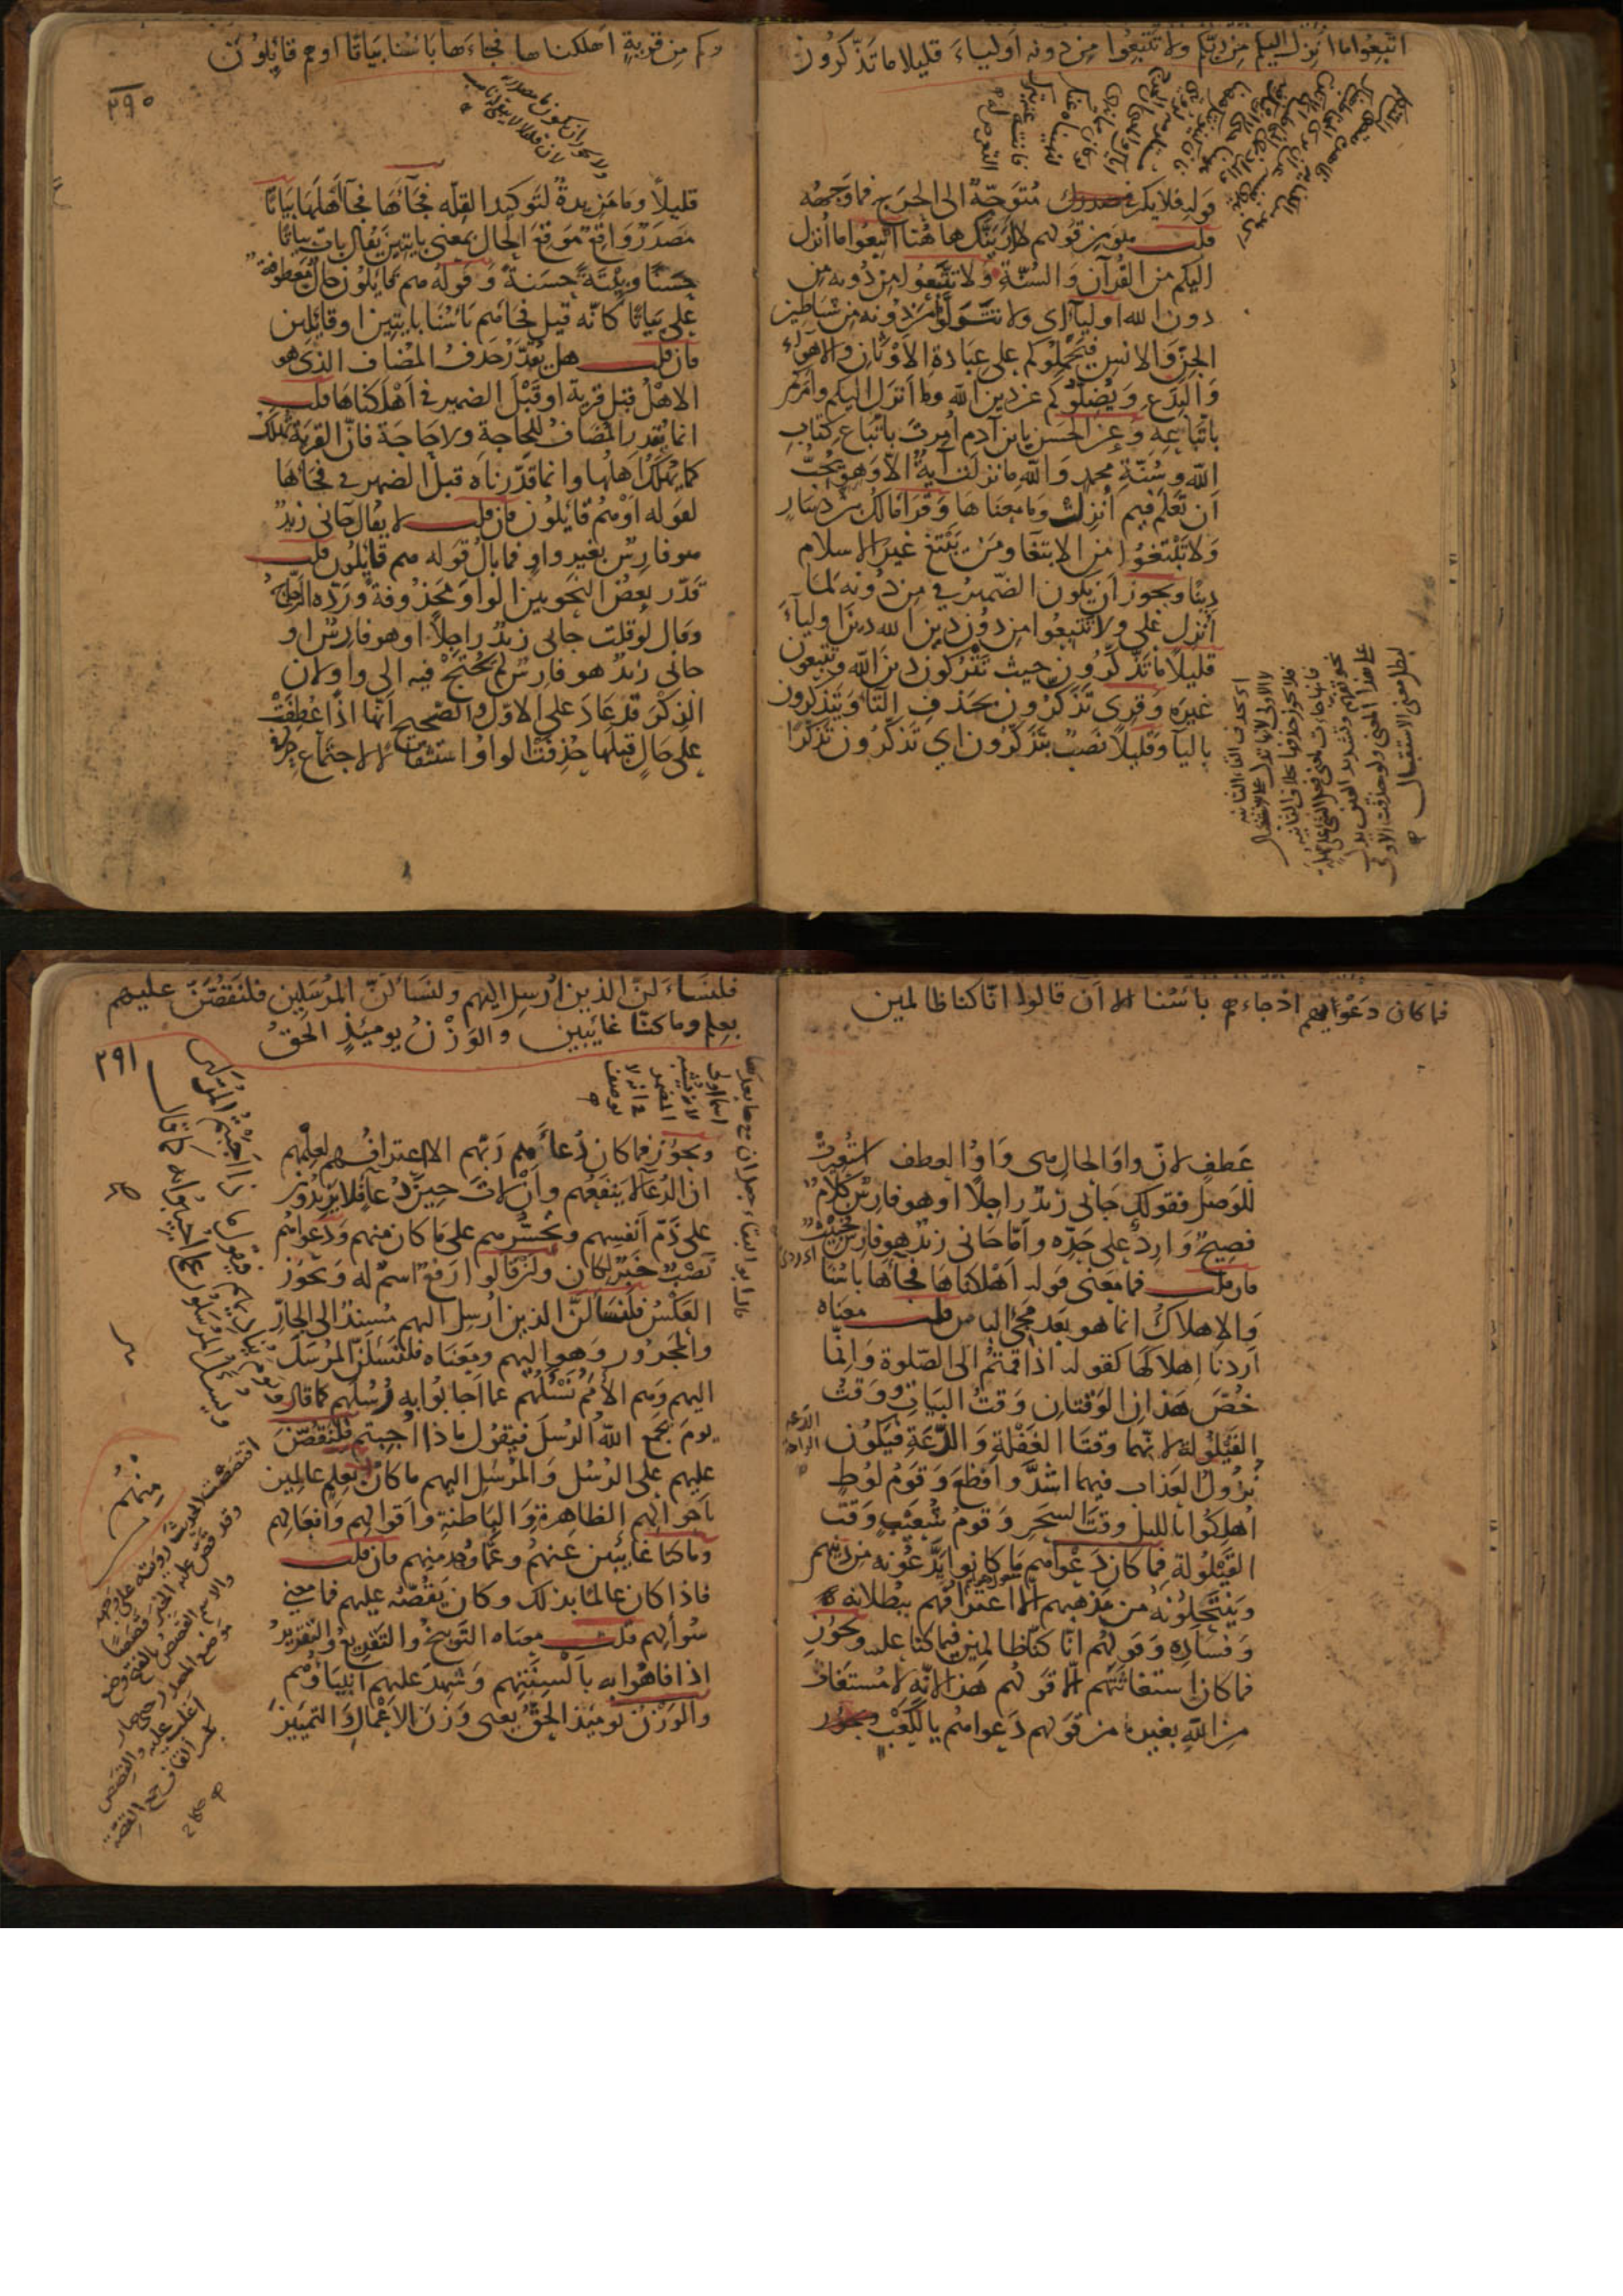 اتبعوا ما أنزل اليكم من ربكم ولا تتبعوا من دونه أولياء قليلا ما تذكرون
قوله فلا يكن في صدرك متوجه الى الحرج فما وجهه
قلت هو من قولهم لا أرينك هاهنا اتبعوا ما أنزل
اليكم من القرآن والسنة ولا تتبعوا من دونه من
دون الله أولياء أي ولا تتولوا من دونه من شياطين
الجن والانس فيحملوكم على عبادة الأوثان والأهواء
والبدع ويضلوكم عن دين الله وما أنزل اليكم وأمركم
باتباعه وعن الحسن يا بن آدم أمرت باتباع كتاب
الله وسنة محمد والله ما نزلت آية الا وهو يحب
أن تعلم فيم أنزلت وما معناها وقرأ مالك بن دينار
ولا تبتغوا من الابتغا ومن يبتغ غير الاسلام
دينا ويجوز أن يكون الضمير في من دونه لما
أنزل على ولا تتبعوا من دون دين الله دين أولياء
قليلا ما تذكرون حيث تتركون دين الله وتتبعون
غيره وقرى تذكرون بحذف التا ويتذكرون
باليا وقليلا نصب بتذكرون اي تذكرون تذكرا
اي تحذف التاء الثانيه
لا الاولى لانها تدل على الاستقبال
فلا يجوز حذفها بخلاف الثانيه
لبطل معنى الاستقبال
وكم من قرية اهلكناها فجاءها بأسنا بياتا او هم قائلون
٢٩٠
ولا يجوز ان يكون ما مصدرية
لان قليلا لا يبقى له ناصب
قليلا وما مزيدة لتوكيد القله فجآءها فجآ أهلها بياتا
مصدر واقع موقع الحال بمعنى بايتين يقال بات بياتا
حسنا وبيتة حسنة وقوله هم قايلون حال معطوفة
على بياتا كانه قيل فجاهم بأسنا بايتين او قايلين
فان قلت هل يقدر حذف المضاف الذي هو
الاهل قبل قرية او قبل الضمير في أهلكناها قلت
انما يقدر المضاف للحاجة ولا حاجة فان القرية تهلك
كما يهلك اهلها وانما قدرناه قبل الضمير في فجاها
لقوله أو هم قايلون فان قلت لا يقال جانى زيد
هو فارس بغير واو فما بال قوله هم قايلون قلت
قدر بعض النحويين الواو محذوفة ورده الزجاج
وقال لو قلت جانى زيد راجلا او هو فارس او
جانى زيد هو فارس لم يحتج فيه الى واو لان
الذكر قد عاد على الاول والصحيح انها اذا عطفت
على حال قبلها حذفت الواو استثقالا لاجتماع حرفى
فما كان دعواهم اذ جاءهم بأسنا الا أن قالوا انا كنا ظالمين
عطف لان واو الحال هى واو العطف استعيرت
للوصل فقولك جانى زيد راجلا او هو فارس كلام
فصيح وارد على حده وأما جانى زيد هو فارس فخبيث
فان قلت فما معنى قوله اهلكناها فجاها باسنا
والاهلاك انما هو بعد مجى الباس قلت معناه
اردنا اهلاكها كقوله اذا قمتم الى الصلوة وانما
خص هذان الوقتان وقت البيات ووقت
القيلولة لانهما وقتا الغفلة والدعة فيكون
نزول العذاب فيهما اشد وأفظع وقوم لوط
أهلكوا بالليل وقت السحر وقوم شعيب وقت
القيلولة فما كان دعواهم ما كانوا يدعونه من دينهم
وينتحلونه من مذهبهم الا اعترافهم ببطلانه
وفساده وقولهم انا كنا ظالمين فيما كنا عليه ويجوز
فما كان استغاثتهم الا قولهم هذا لانه لا مستغاث
من الله بغيره من قولهم دعواهم يا لكعب ويجوز
الدعه
الراحه
فلنسألن الذين أرسل اليهم ولنسألن المرسلين فلنقصن عليهم
بعلم وما كنا غائبين والوزن يومئذ الحق
٢٩١
ويجوز فما كان دعاءهم ربهم الا اعترافهم لعلمهم
ان الدعا لا ينفعهم وأن لات حين دعا فلا يزيدون
على ذم أنفسهم وتحسرهم على ما كان منهم ودعواهم
نصب خبر لكان وأن قالوا رفع اسم له ويجوز
العكس فلنسألن الذين ارسل اليهم مسند الى الجار
والمجرور وهو اليهم ومعناه فلنسلن المرسل
اليهم وهم الأمم نسئلهم عما اجابوا به رسلهم كما قال
يوم يجمع الله الرسل فيقول ماذا اجبتم فلنقصن
عليهم على الرسل والمرسل اليهم ما كان بعلم عالمين
باحوالهم الظاهرة والباطنة وأقوالهم وأفعالهم
وما كنا غايبين عنهم وعما وجد منهم فان قلت
فاذا كان عالما بذلك وكان يقصه عليهم فما معنى
سوالهم قلت معناه التوبيخ والتقريع والتقرير
اذا فاهوا به بألسنتهم وشهد عليهم انبياؤهم
والوزن يومئذ الحق يعنى وزن الاعمال والتمييز
منهم
اقتصصت الحديث رويته على وجهه
وقد قص عليه الخبر قصصا
والاسم القصص بالفتح وضع
موضع المصدر حتى صار
اغلب عليه والقصص
بكسر القاف جمع القصة